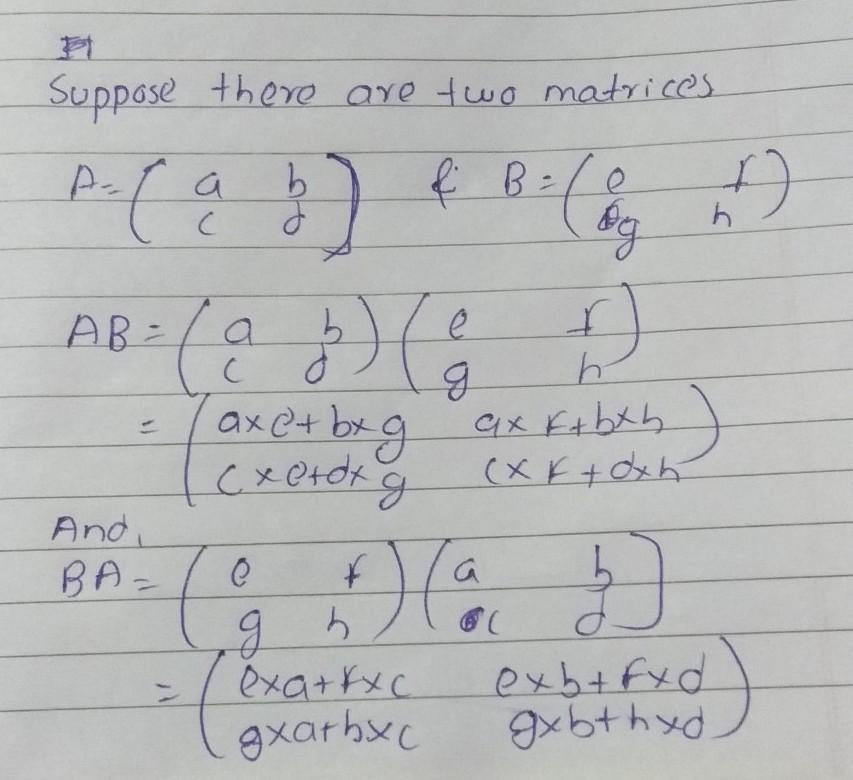 Suppose there are two matrices
A = ( a b
c d ] & B = ( e f
g h )
AB = ( a b
c d ) ( e f
g h )
= ( a×e+b×g a×f+b×h
c×e+d×g c×f+d×h )
And,
BA = ( e f
g h ) ( a b
c d ]
= ( e×a+f×c e×b+f×d
g×a+h×c g×b+h×d )